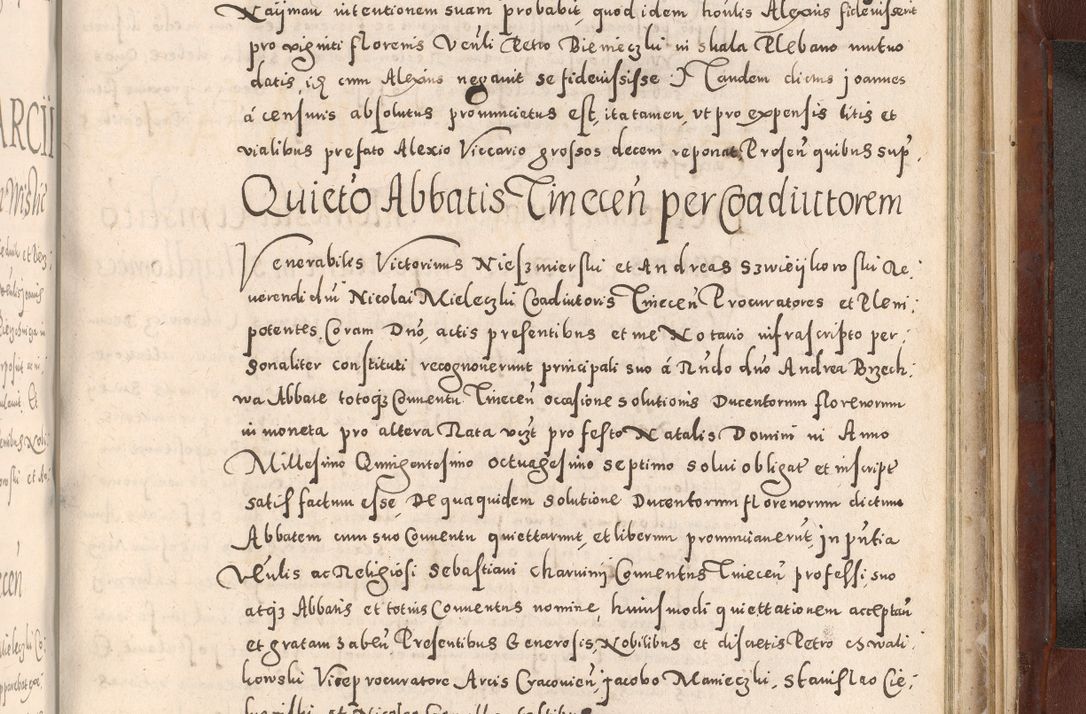 Naÿman intentionem suam probabit, quod idem honlis Alexius fideiussent
pro viginti florenis Venli Petro Bienieczki in Skala Plebano mutuo
datis, cum Alexius negavit se fideiussisse. Tandem dictus joannes
á censuris absolutus pronuncietus est, ita tamen, vt pro expensis litis et
vialibus prefato Alexio Viccario grossos decem reponat, Presen quibus sup.
Quieto Abbatis Tinecen per Coadiutorem
Venerabiles Victorinus Nieszmierski et Andreas Re,
uerendi dni Nicolai Mieleczki Coadiutoris Tinecen Procuratores et Pleni,
potentes, Coram Dno, actis presentibus et me Notario infrascripto per,
sonaliter constituti recognouerunt principali suo á Rndo dno Andrea Brzech,
wa Abbate totoqz Conuentu Tinecen occasione solutionis Ducentorum florenorum
in moneta pro altera Rata vizt pro festo Natalis Domini in Anno
Millesimo Quingentesimo octuagesimo septimo solui obligat et inscript
satisfactum esse, De qua quidem solutione Ducentorum florenorum dictum
Abbatem cum suo Conuentu quiettarunt, et liberum pronunciauerut, in pntia
Venlis ac Religiosi Sebastiani Conuentus Tinecen professi, suo
atqz Abbatis et totius Conuentus nomine, huiusmodi quiettationem acceptan
et gratam Presentibus Generosis, Nobilibus et discretis Petro
kowski Viceprocuratore Arcis Cracouien, jacobo Manieczki, Stanislao Cie,
et Nicolao
ARCII